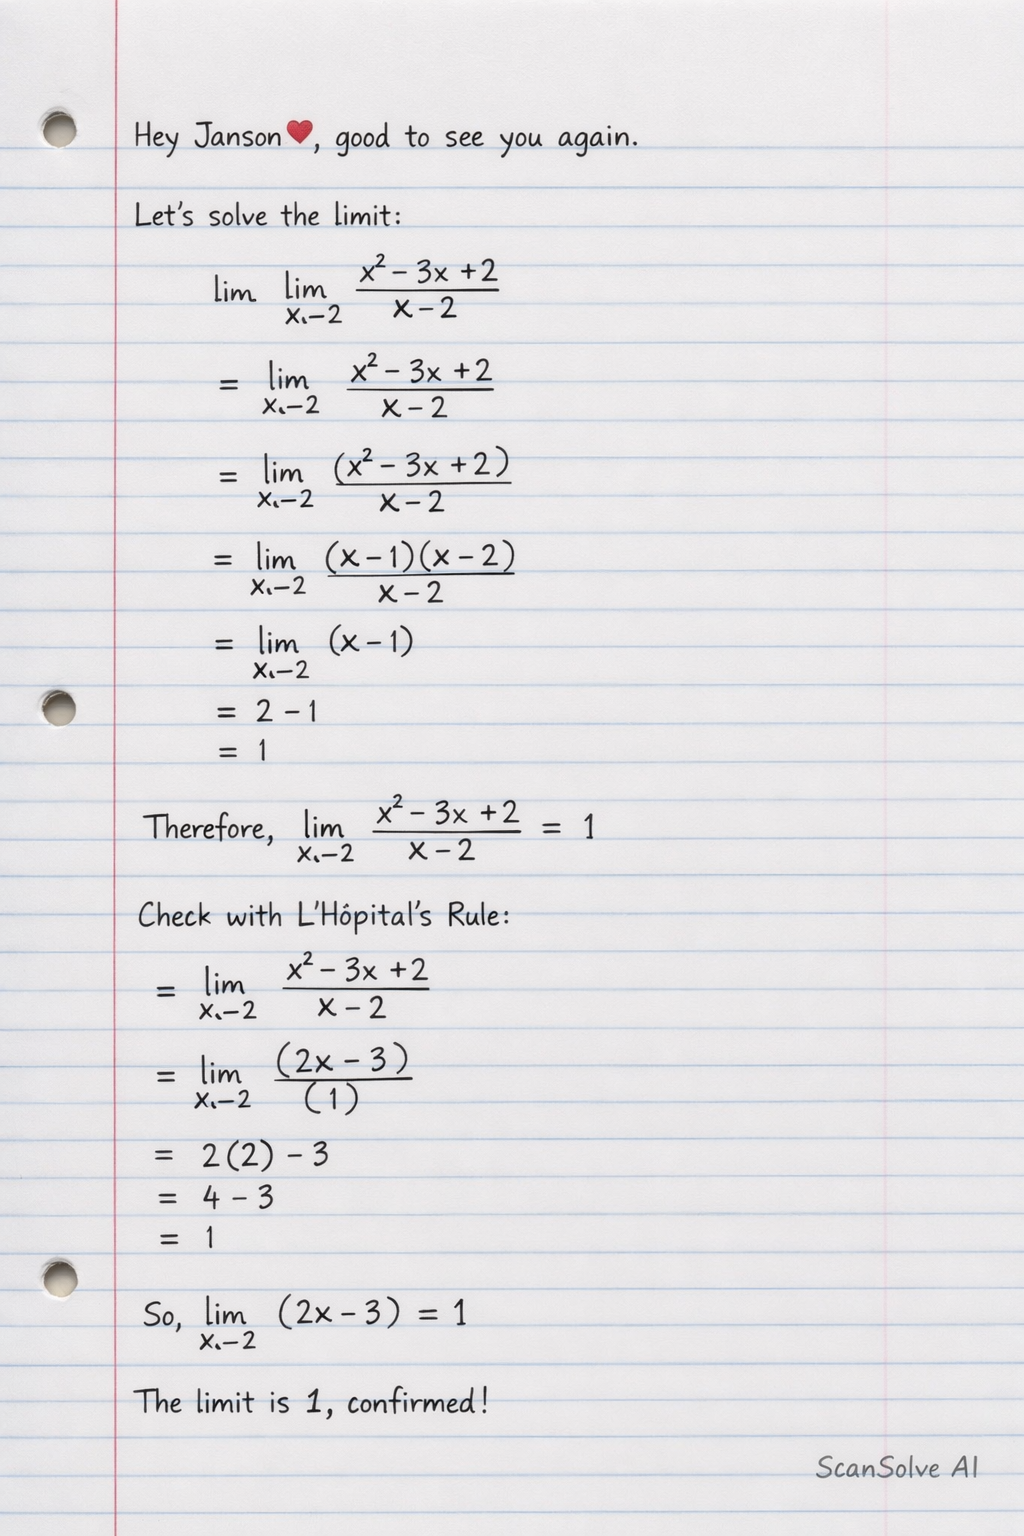 Hey Janson❤️, good to see you again.
Let's solve the limit:
lim lim x˛-2 x² - 3x + 2 / x - 2
= lim x˛-2 x² - 3x + 2 / x - 2
= lim x˛-2 (x² - 3x + 2) / x - 2
= lim x˛-2 (x - 1)(x - 2) / x - 2
= lim x˛-2 (x - 1)
= 2 - 1
= 1
Therefore, lim x˛-2 x² - 3x + 2 / x - 2 = 1
Check with L'Hôpital's Rule:
= lim x˛-2 x² - 3x + 2 / x - 2
= lim x˛-2 (2x - 3) / (1)
= 2(2) - 3
= 4 - 3
= 1
So, lim x˛-2 (2x - 3) = 1
The limit is 1, confirmed!
ScanSolve AI